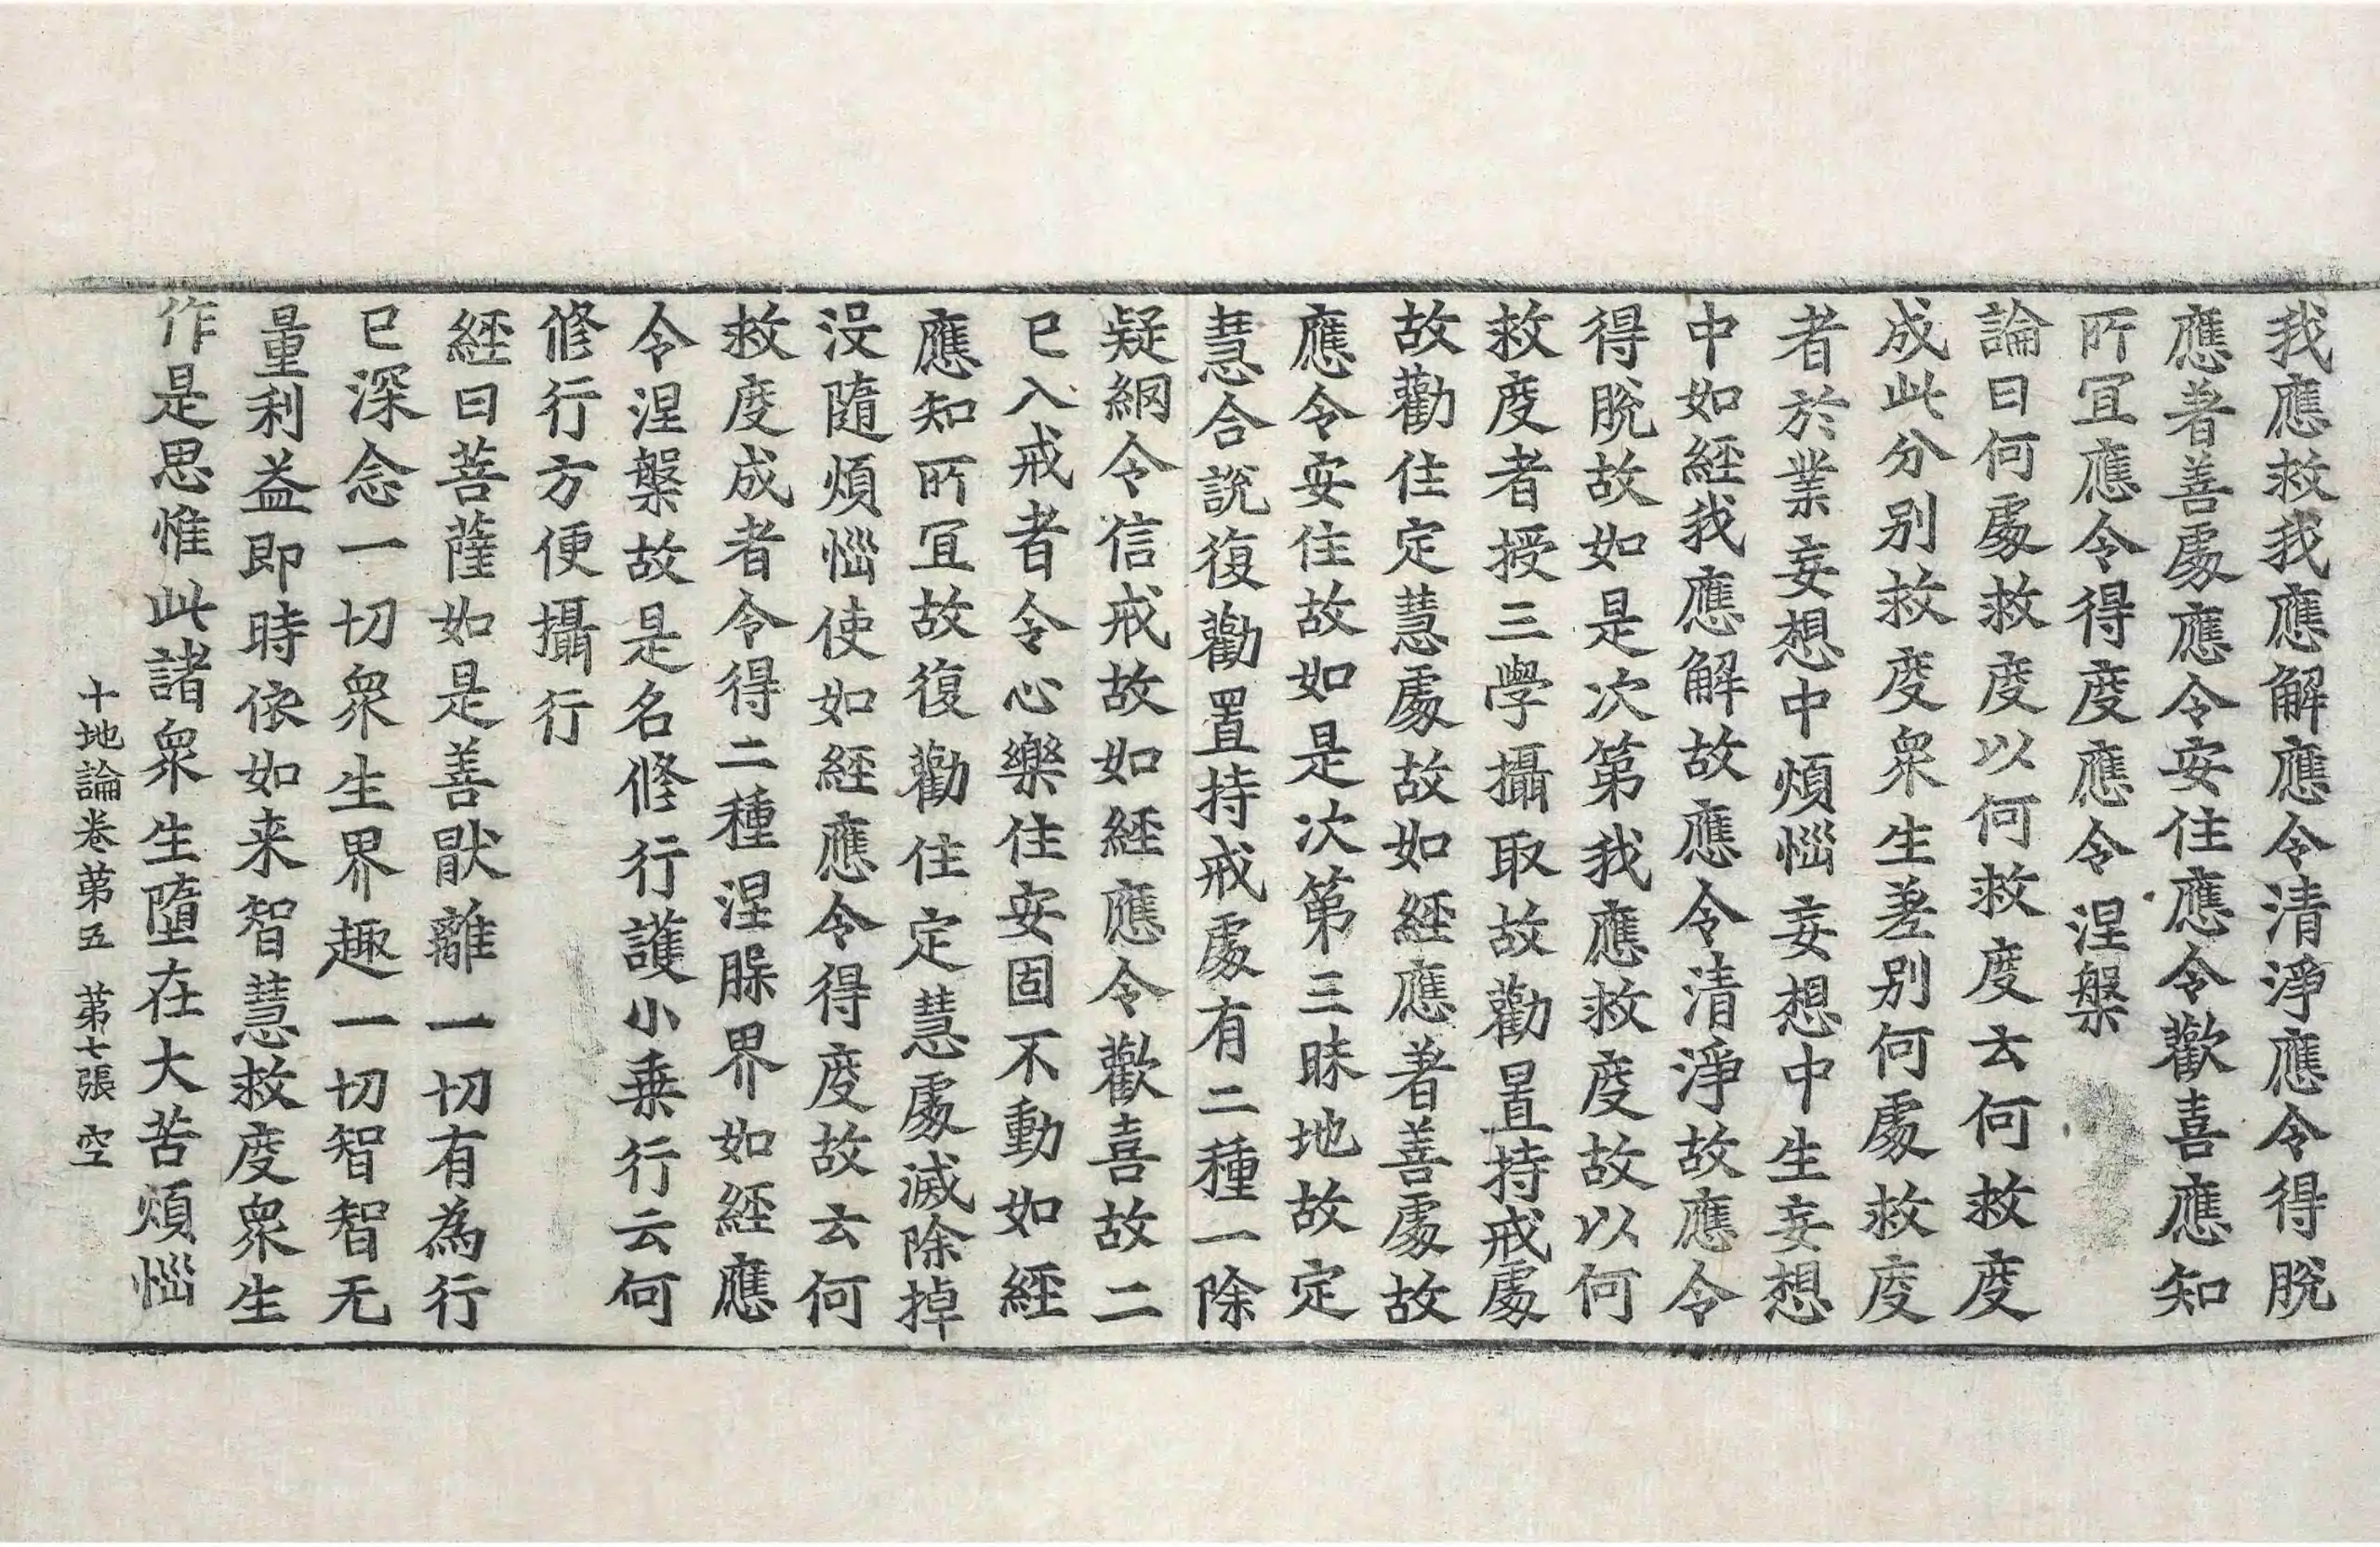 我應救我應解應令清淨應令得脫
應著善處應令安住應令歡喜應知
所冝應令得度應令涅槃
論曰何處救度以何救度云何救度
成此分別救度衆生差別何處救度
者於業妄想中煩惱妄想中生妄想
中如經我應解故應令清淨故應令
得脫故如是次第我應救度故以何
救度者授三學攝取故勸置持戒處
故勸住定慧處故如經應著善處故
應令安住故如是次第三昧地故定
慧合說復勸置持戒處有二種一除
疑網令信戒故如經應令歡喜故二
已入戒者令心樂住安固不動如經
應知所冝故復勸住定慧處滅除掉
沒隨煩惱使如經應令得度故云何
救度成者令得二種涅槃界如經應
令涅槃故是名修行護小乗行云何
修行方便攝行
経曰菩薩如是善猒離一切有為行
已深念一切衆生界趣一切智智无
量利益即時依如来智慧救度衆生
作是思惟此諸衆生墮在大苦煩惱
十地論卷第五　第七張　空